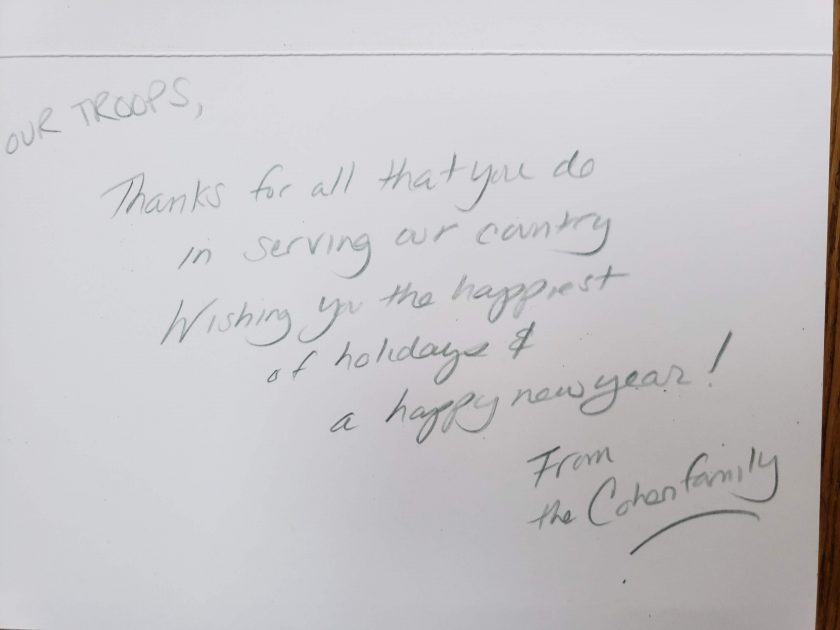 OUR TROOPS,
Thanks for all that you do
in serving our country
Wishing you the happiest
of holidays &
a happy new year!
From
the Cohen family